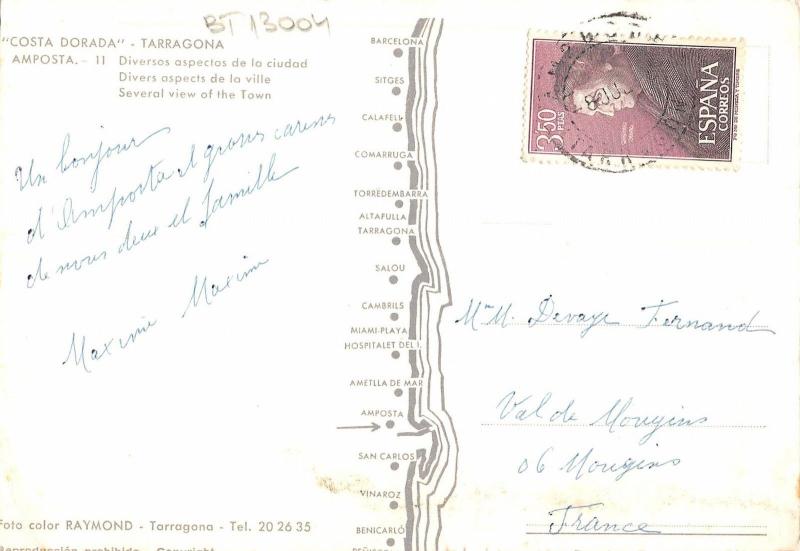 BT 13004
"COSTA DORADA" - TARRAGONA
AMPOSTA. - 11 Diversos aspectos de la ciudad
Divers aspects de la ville
Several view of the Town
Un bonjour
d'Amposta et groses caresses
de nous deux et famille
Maxime Maxim
BARCELONA
SITGES
CALAFELL
COMARRUGA
TORREDEMBARRA
ALTAFULLA
TARRAGONA
SALOU
CAMBRILS
MIAMI-PLAYA
HOSPITALET DEL I.
AMETLLA DE MAR
AMPOSTA
SAN CARLOS
VINAROZ
BENICARLÓ
3,50 PTAS
ESPAÑA
CORREOS
Mr M. Devaye Fernand
Val de Mougins
06 Mougins
France
Foto color RAYMOND - Tarragona - Tel. 20 26 35
Reproducción prohibida - Copyright